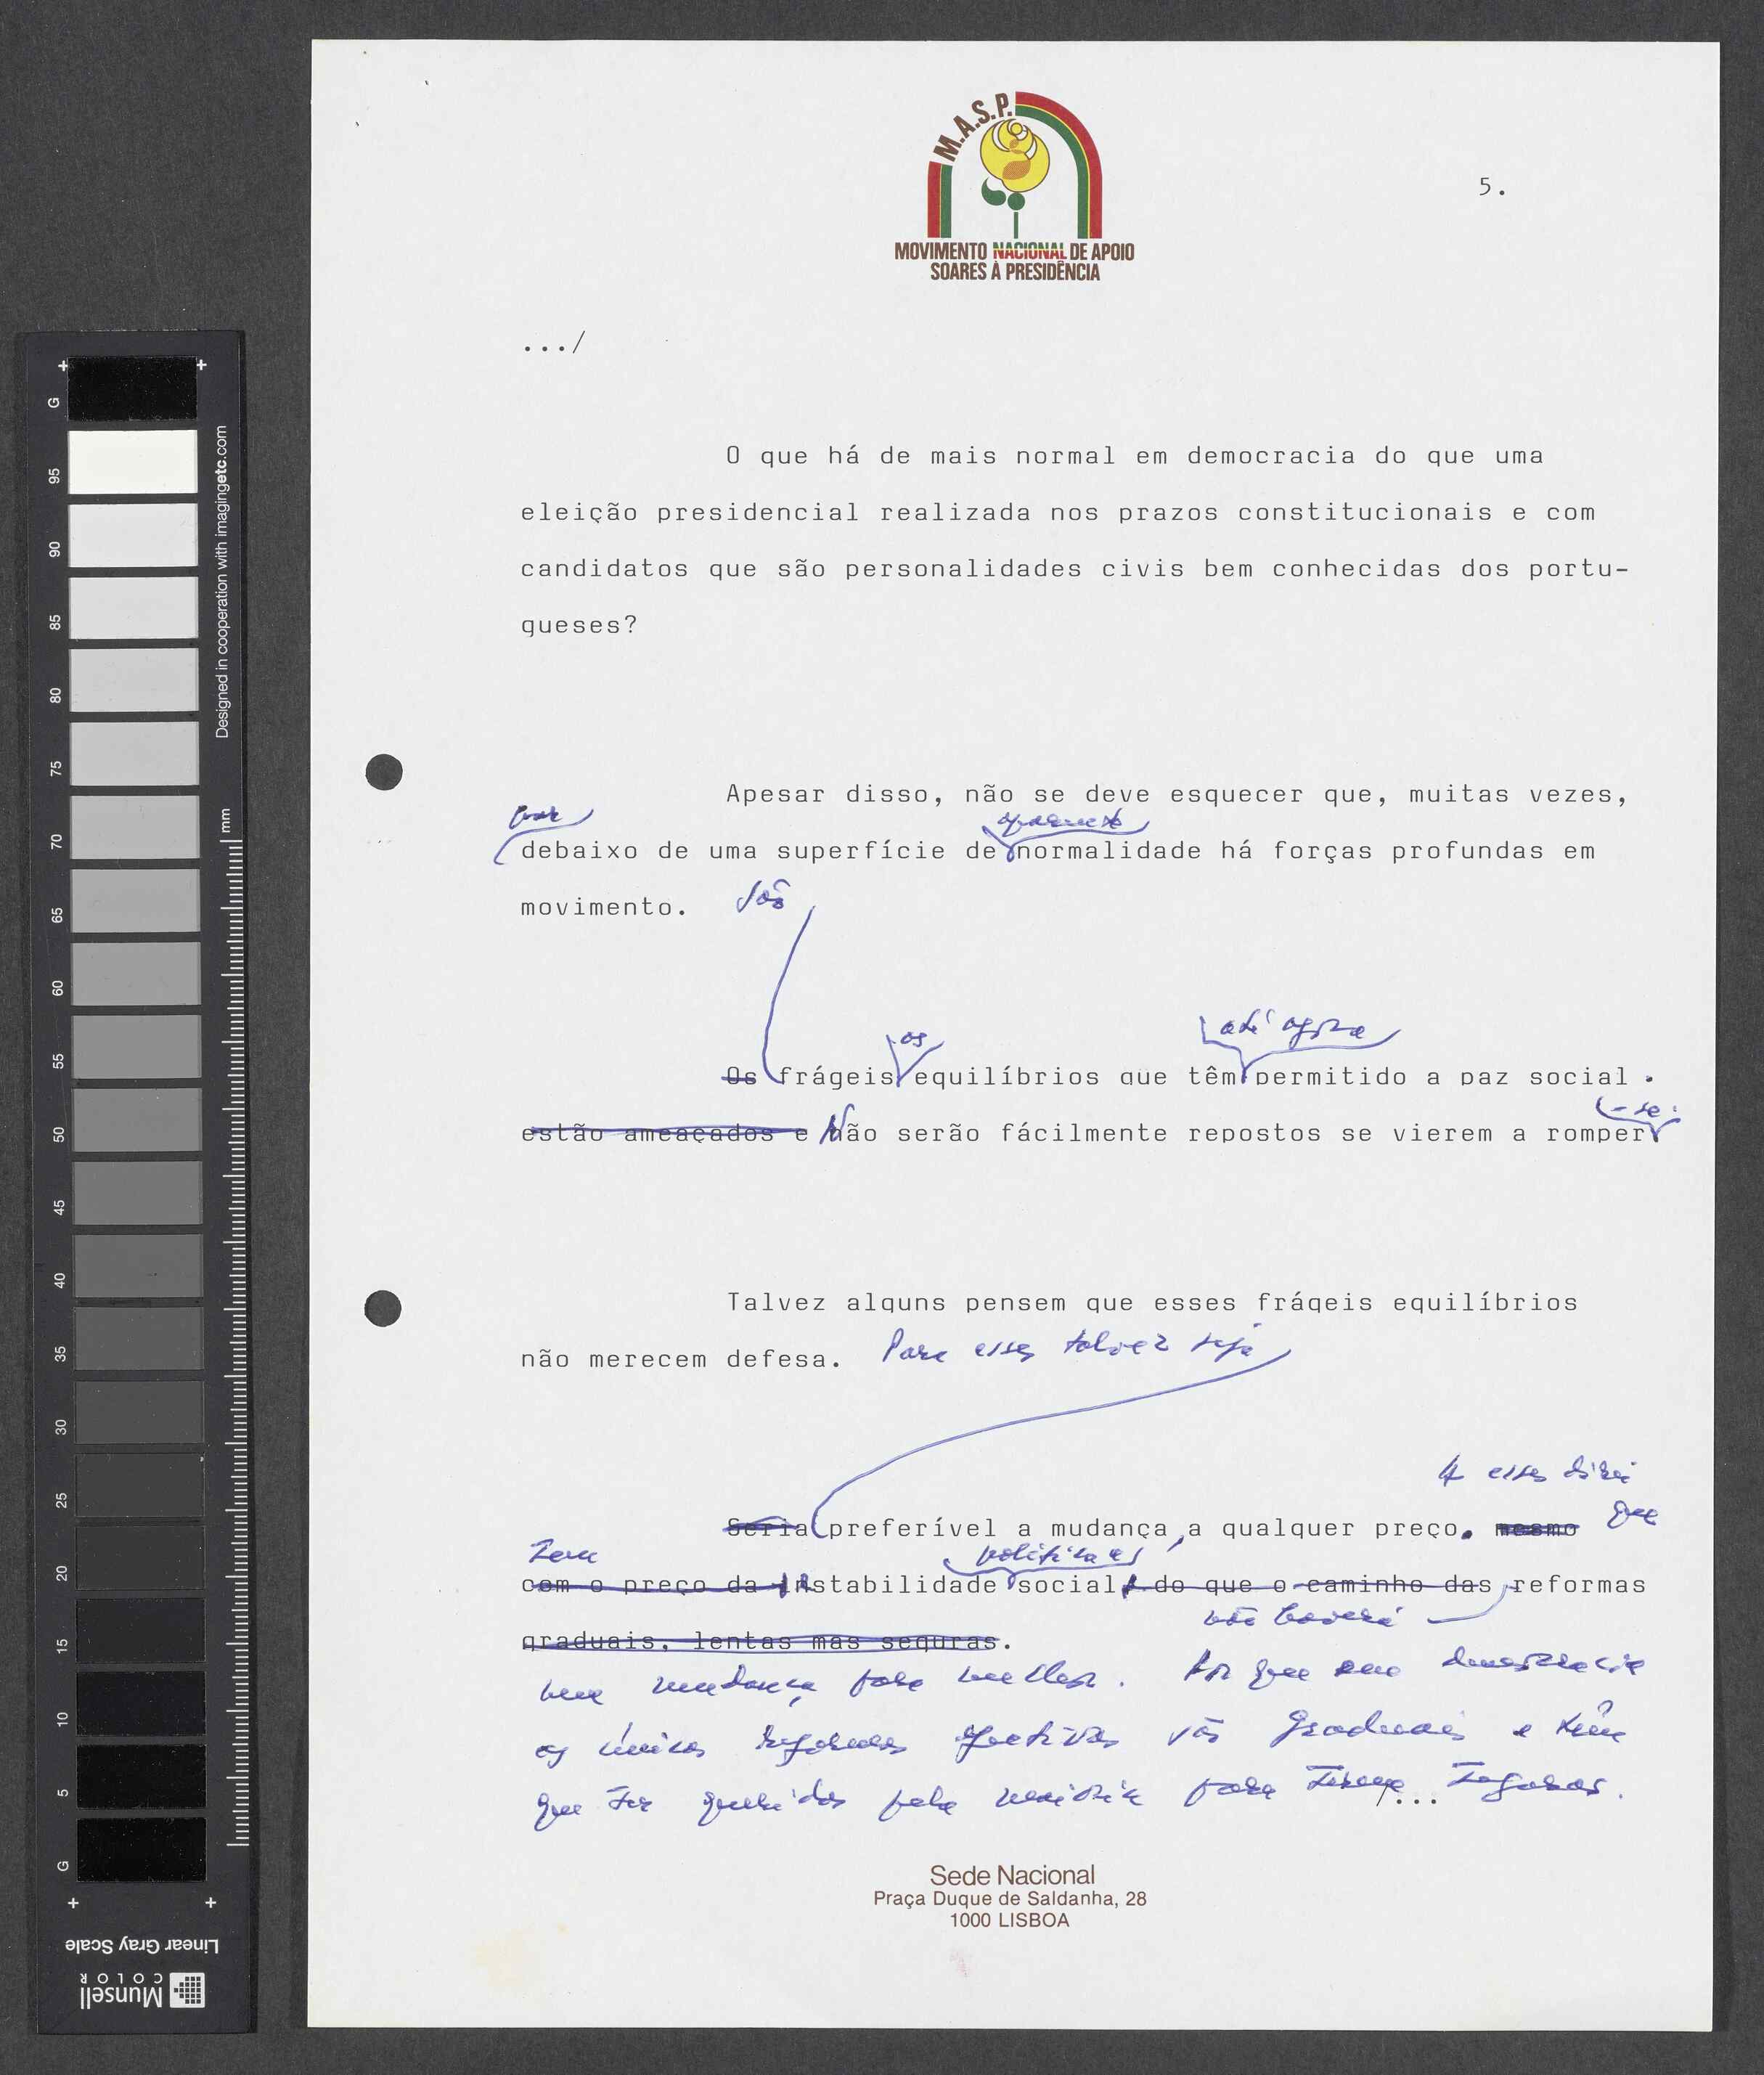 M.A.S.P.
MOVIMENTO NACIONAL DE APOIO
SOARES À PRESIDÊNCIA
5.
.../
O que há de mais normal em democracia do que uma
eleição presidencial realizada nos prazos constitucionais e com
candidatos que são personalidades civis bem conhecidas dos portu-
gueses?
Apesar disso, não se deve esquecer que, muitas vezes,
por
aparente
debaixo de uma superfície de normalidade há forças profundas em
movimento. São
os
até agora
Os frágeis equilíbrios que têm permitido a paz social.
-se.
estão ameaçados e Não serão fácilmente repostos se vierem a romper
Talvez alguns pensem que esses frágeis equilíbrios
não merecem defesa. Para esses talvez seja
A esses direi
que
Seria preferível a mudança, a qualquer preço. mesmo
Sem
política e
com o preço da instabilidade social, do que o caminho das reformas
não haverá
graduais, lentas mas seguras.
uma mudança para melhor. Porque em democracia
as únicas reformas efectivas são graduais e têm
que ser queridas pela maioria para serem seguras.
/...
Sede Nacional
Praça Duque de Saldanha, 28
1000 LISBOA
+ +
G
95
90
85
80
75
70
65
60
55
50
45
40
35
30
25
20
15
10
5
G
+ +
Designed in cooperation with imagingetc.com
mm
Linear Gray Scale
Munsell
COLOR